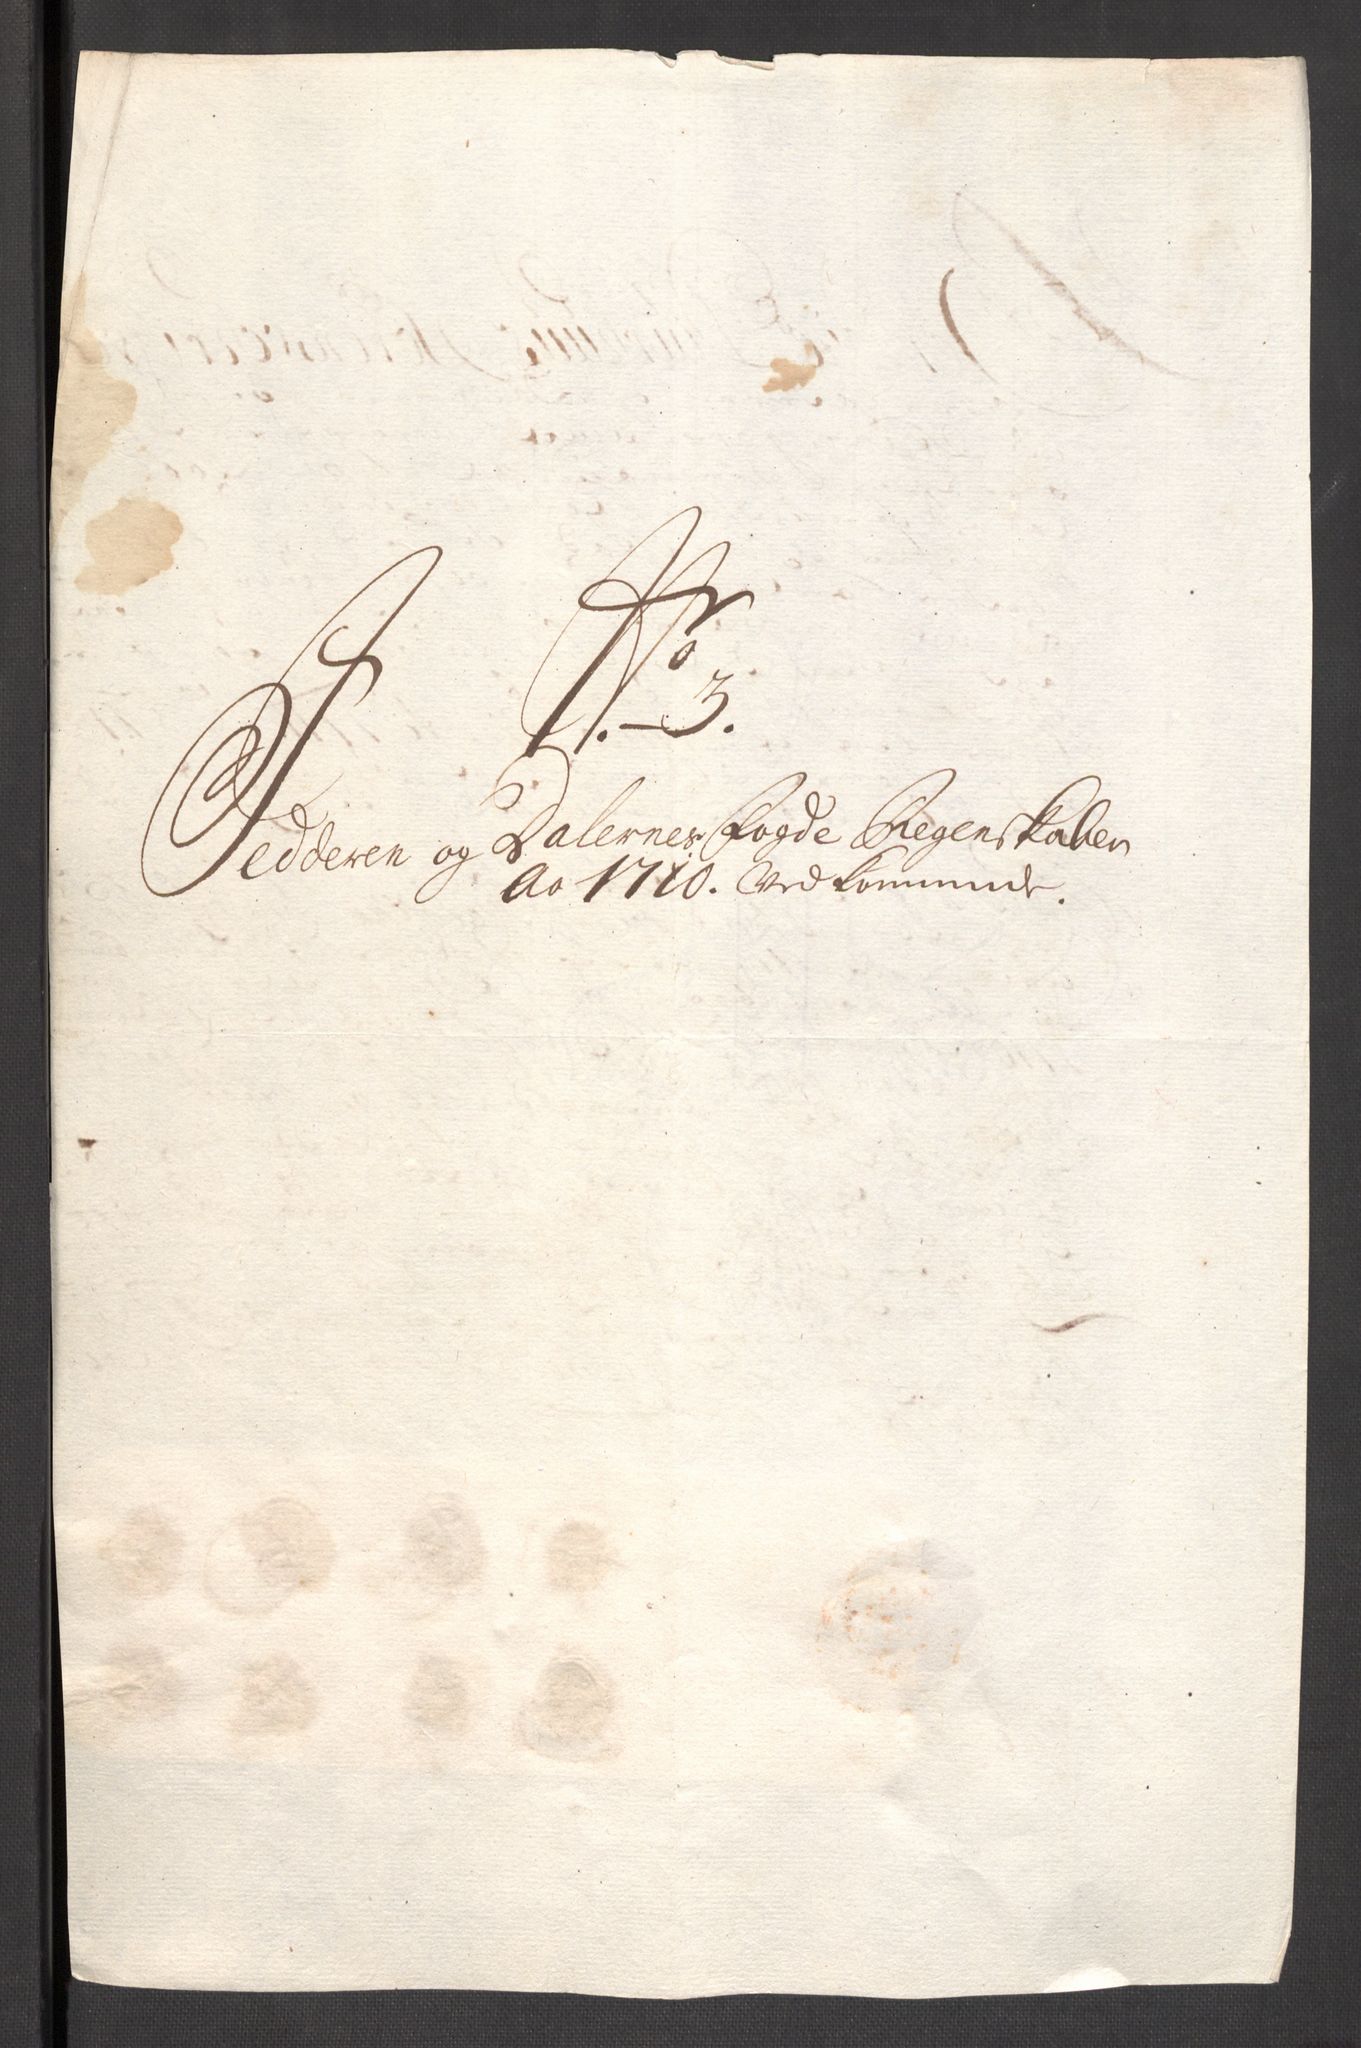 No. 3.
Jedderen og Dalernes Fogde Regenskaber
Ao 1710. Vedkommende.